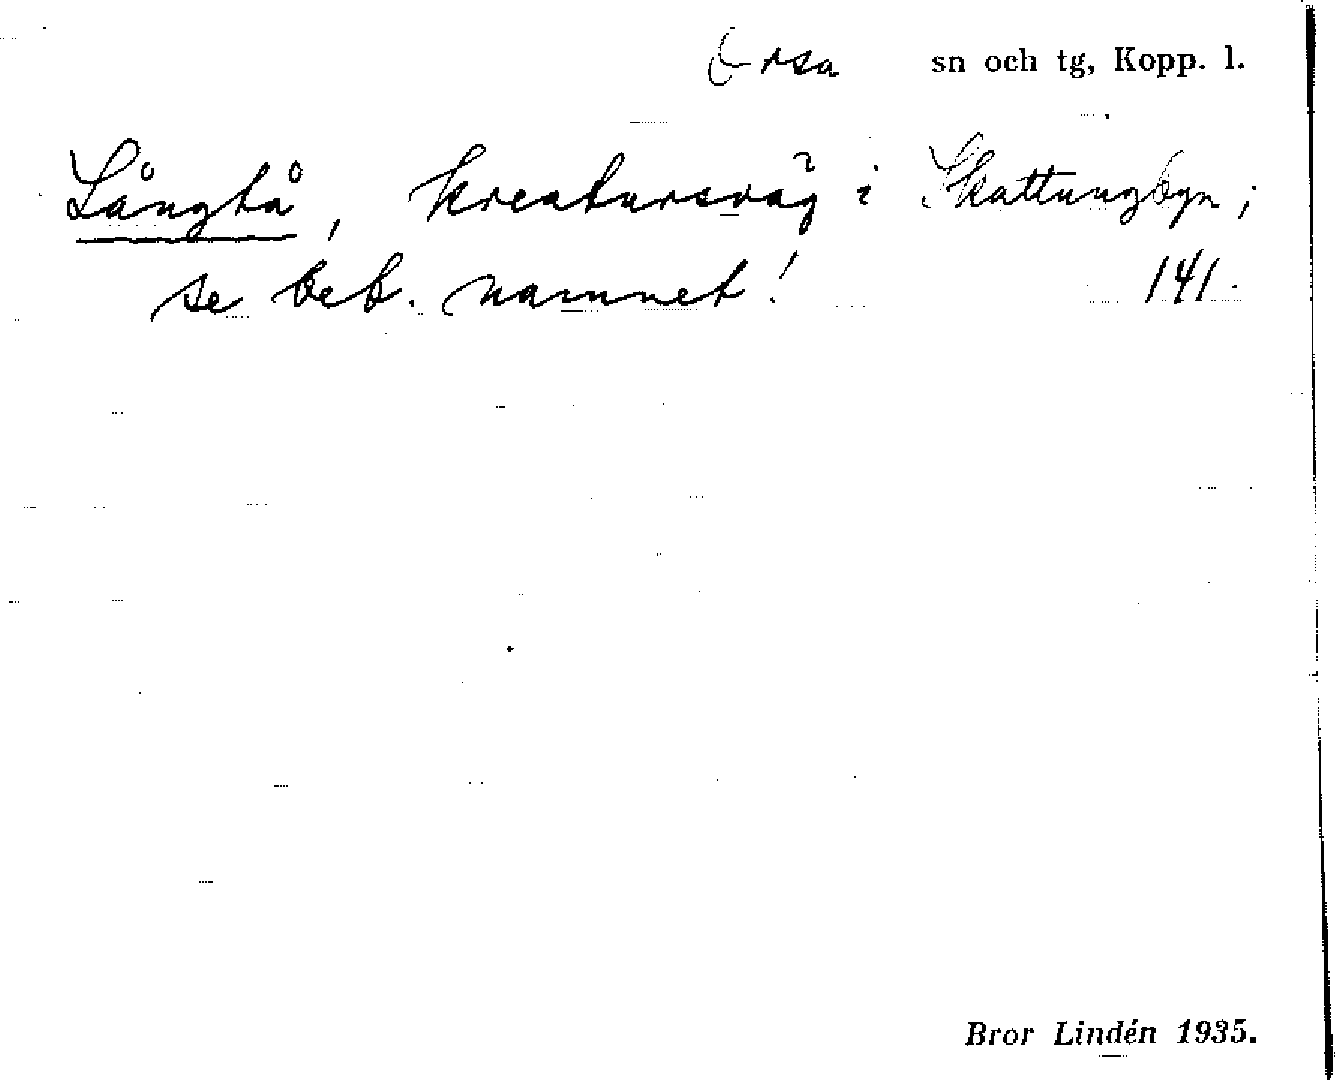 Orsa sn och tg, Kopp. l.
Långtå, kreatursväg i Skattungbyn;
se beb. namnet! 141.
Bror Lindén 1935.